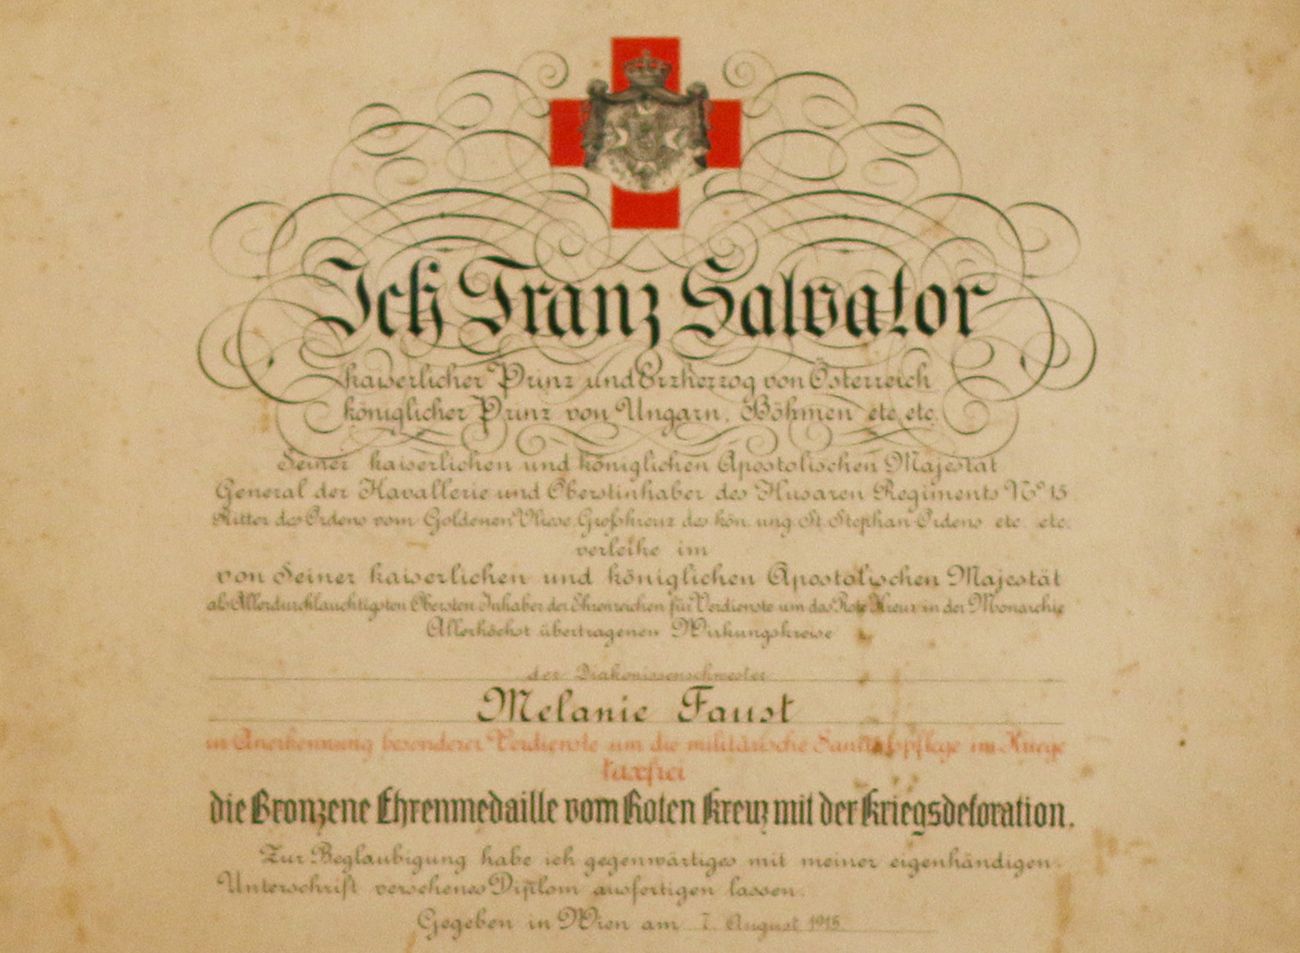 Ich Franz Salvator
kaiserlicher Prinz und Erzherzog von Österreich
königlicher Prinz von Ungarn, Böhmen etc. etc.
Seiner kaiserlichen und königlichen Apostolischen Majestät
General der Kavallerie und Oberstinhaber des Husaren Regiments No 15
Ritter des Ordens vom Goldenen Vliese, Großkreuz des kön. ung. St. Stephan-Ordens etc. etc.
verleihe im
von Seiner kaiserlichen und königlichen Apostolischen Majestät
als Allerdurchlauchtigsten Obersten Inhaber der Ehrenzeichen für Verdienste um das Rote Kreuz in der Monarchie
Allerhöchst übertragenen Wirkungskreise
der Diakonissenschwester
Melanie Faust
in Anerkennung besonderer Verdienste um die militärische Sanitätspflege im Kriege
taxfrei
die Bronzene Ehrenmedaille vom Roten Kreuz mit der Kriegsdekoration.
Zur Beglaubigung habe ich gegenwärtiges mit meiner eigenhändigen
Unterschrift versehenes Diplom ausfertigen lassen.
Gegeben in Wien am 7. August 1915.